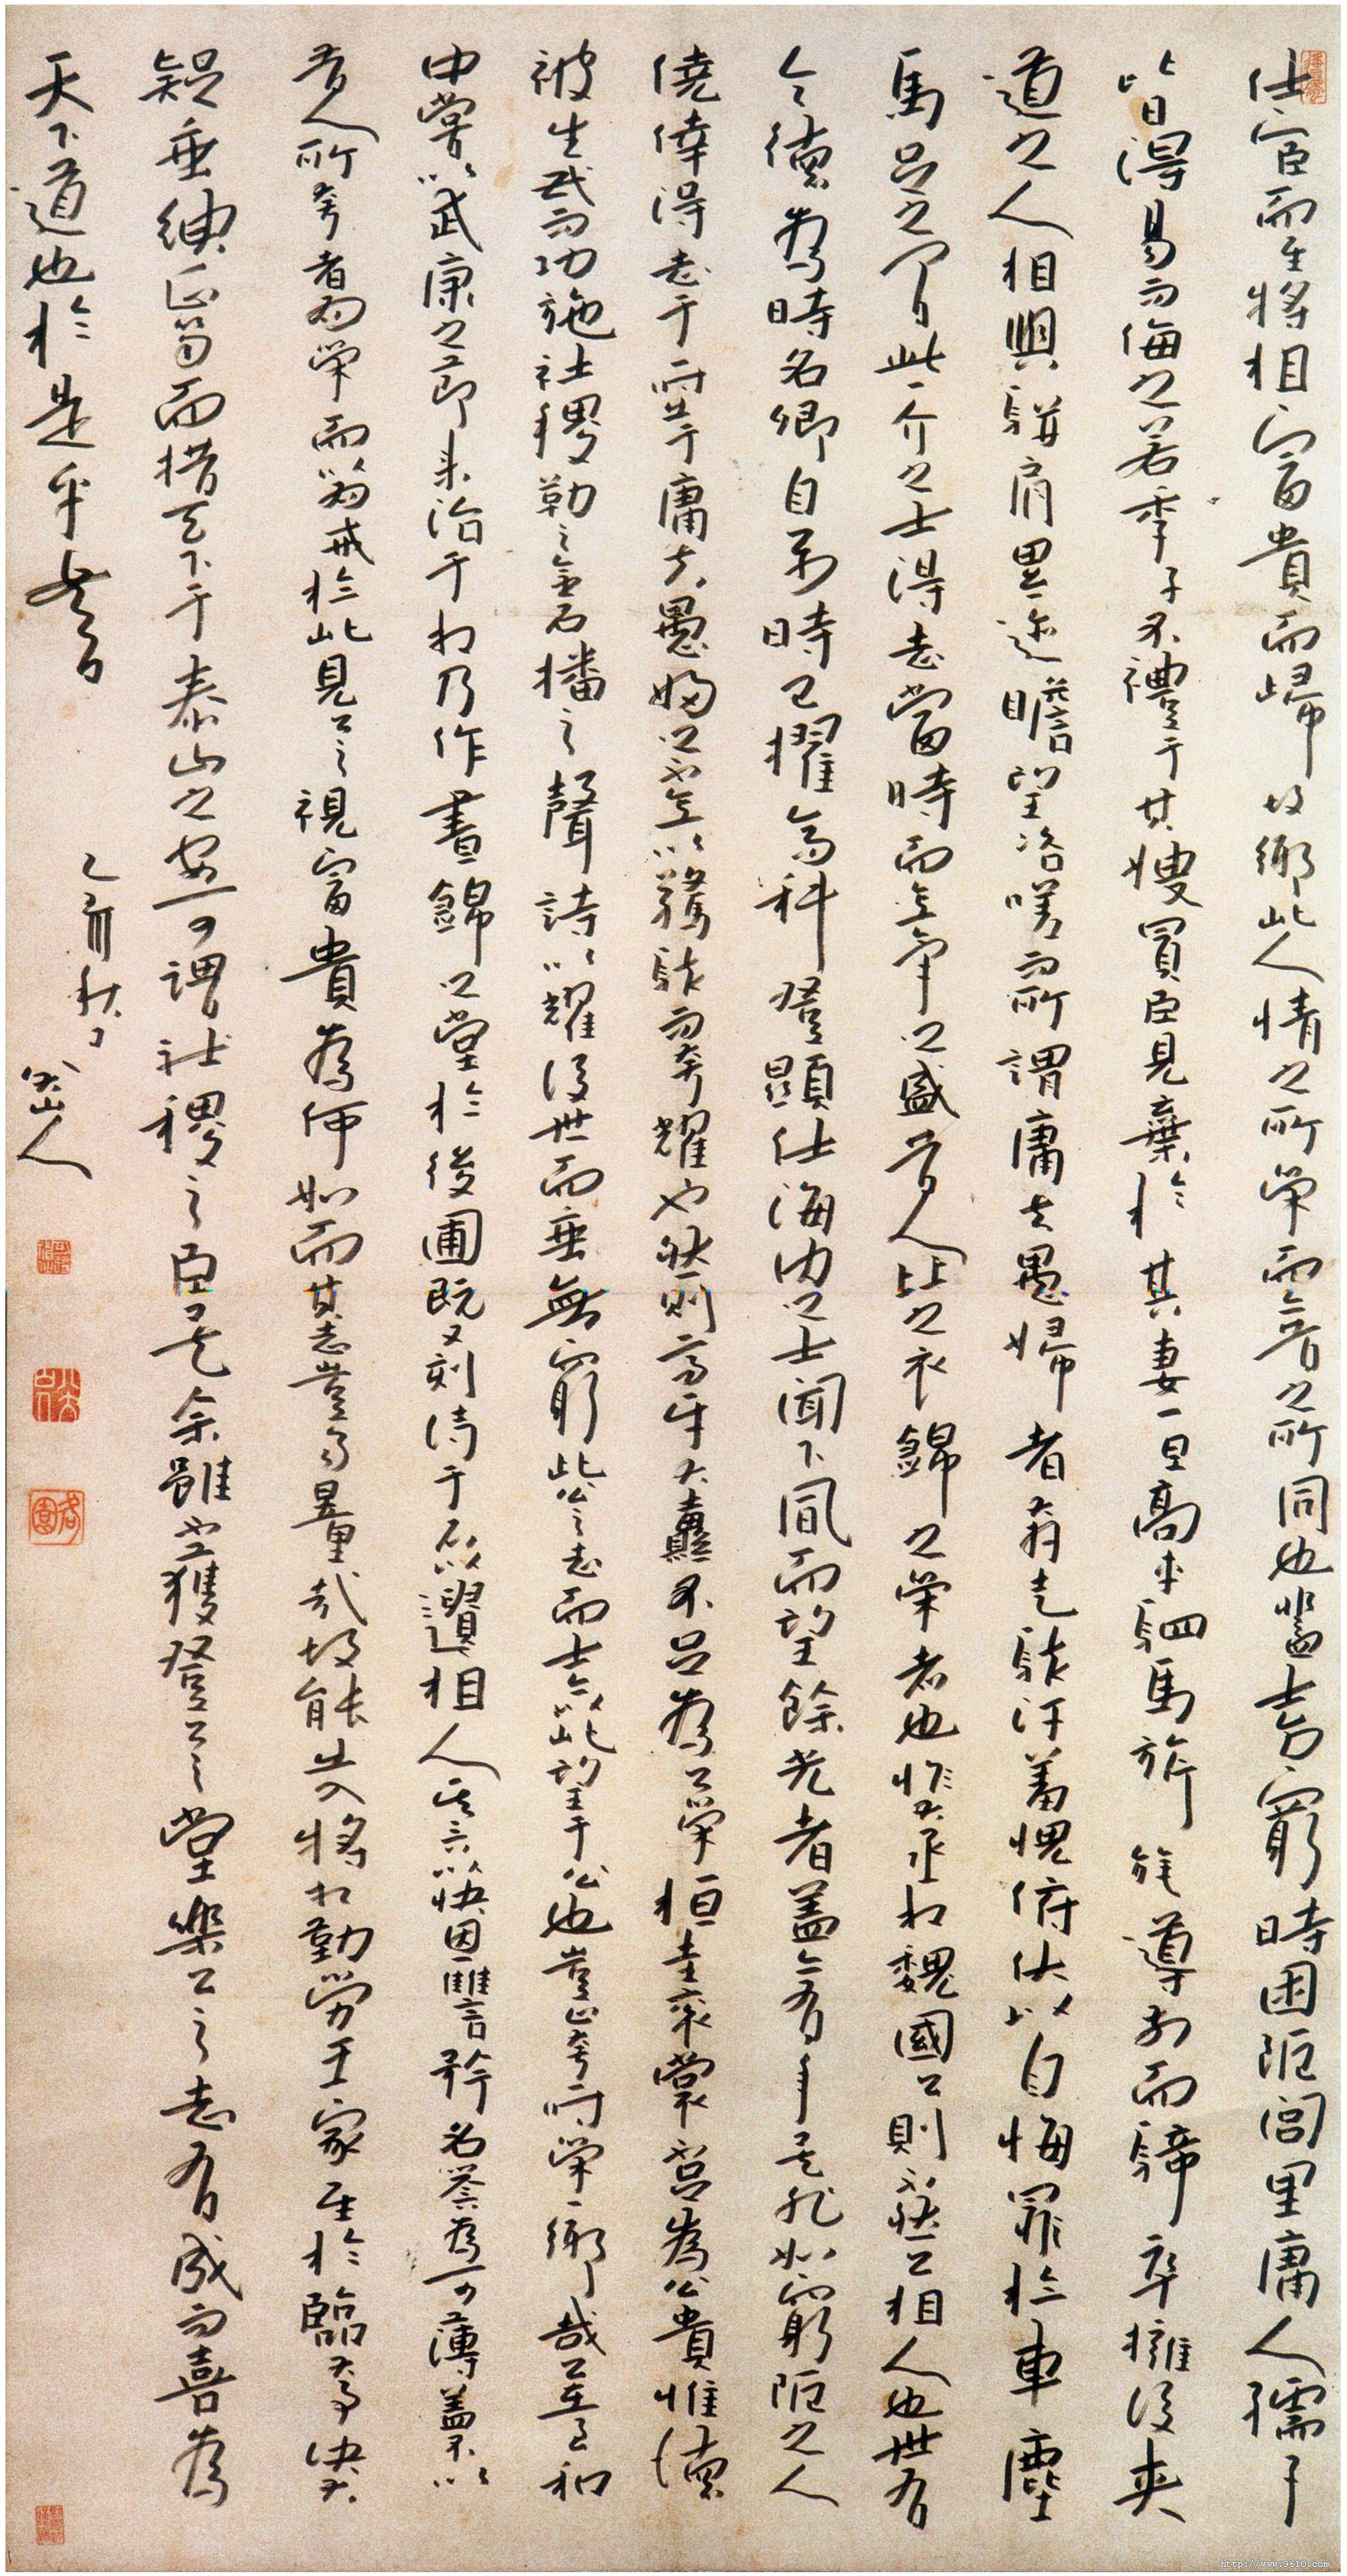 仕宦而至將相富貴而歸故鄉此人情之所榮而今昔之所同也蓋士方窮時困阨閭里庸人孺子
皆得易而侮之若季子不禮于其嫂買臣見棄於其妻一旦高車駟馬旂旄導前而騎卒擁後夾
道之人相與駢肩累迹瞻望咨嗟而所謂庸夫愚婦者奔走駭汗羞愧俯伏以自悔罪於車塵
馬足之間此一介之士得志當時而意氣之盛昔人比之衣錦之榮者也惟大丞相魏國公則不然公相人也世有
令德為時名卿自公少時已擢高科登顯仕海內之士聞下風而望餘光者蓋亦有年矣非如窮阨之人
僥倖得志于一時出于庸夫愚婦之不意以驚駭而夸耀也然則高牙大纛不足為公榮桓圭袞裳不足為公貴惟德
被生民而功施社稷勒之金石播之聲詩以耀後世而垂無窮此公之志而士亦以此望于公也豈止夸一時榮一鄉哉公在至和
中嘗以武康之節來治于相乃作晝錦之堂於後圃既又刻詩于石以遺相人其言以快恩讎矜名譽為可薄蓋不以
昔人所夸者為榮而以為戒於此見公之視富貴為何如而其志豈易量哉故能出入將相勤勞王家至於臨大事決大
疑垂紳正笏而措天下于泰山之安可謂社稷之臣矣余雖不獲登公之堂樂公之志有成而喜為
天下道也於是乎書
乙亥秋日
八大山人
http://www.9610.com